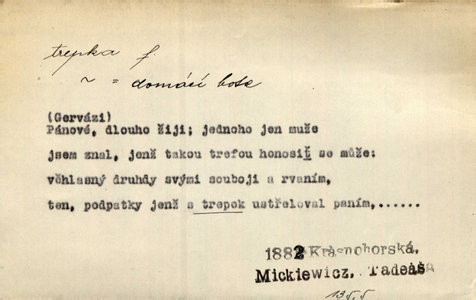 trepka f.
~ = domácí bota
(Gervázi)
Pánové, dlouho žiji; jednoho jen muže
jsem znal, jenž takou trefou honosiť se může:
věhlasný druhdy svými souboji a rvaním,
ten, podpatky jenž s trepek ustřeloval paním,......
1882 Krásnohorská,
Mickiewicz, Tadeáš